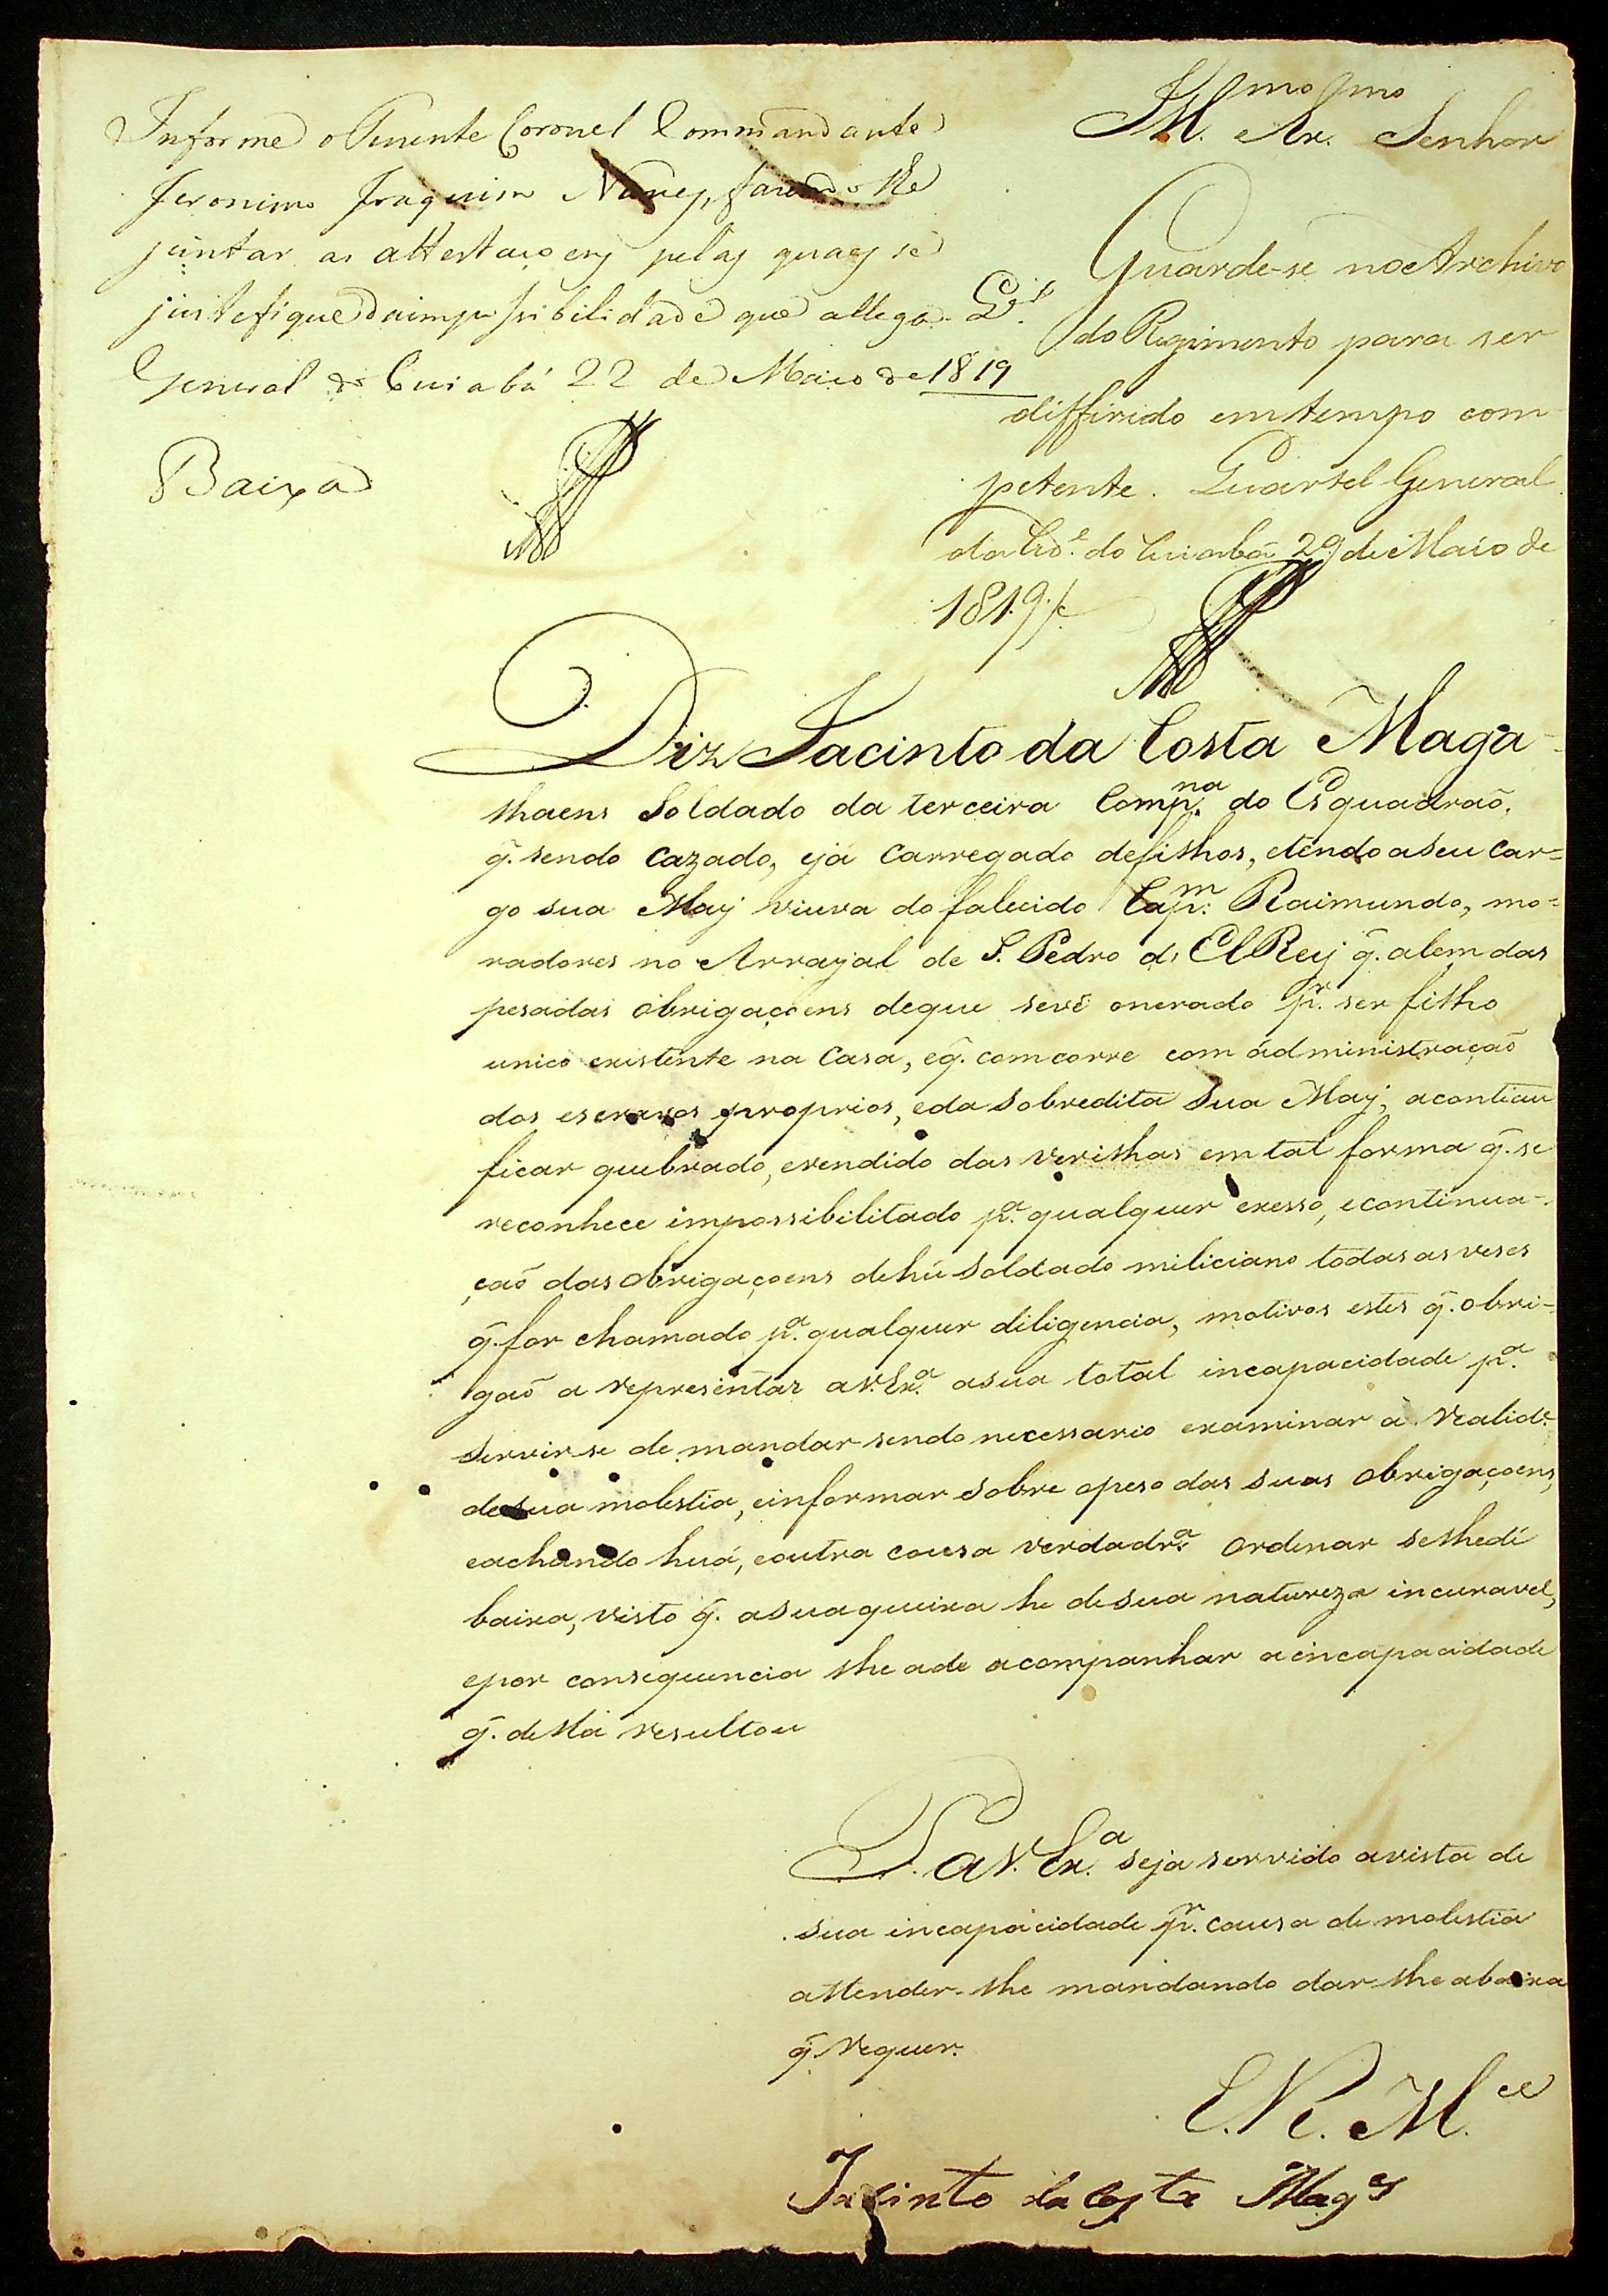 Informe o Tenente Coronel Commandante
Jeronimo Joaquim Nunes, fazendo lhe
juntar as attestaçoens pelas quaes se
justefique daimpossibilidade que allega. Q.el
General do Cuiabá 22 de Maio de 1819
Baixa
Ill.mo e Ex.mo Senhor
Guarde-se no Archivo
do Regimento para ser
differido emtempo com
petente. Quartel General
da Cid.e do Cuiabá 29 de Maio de
1819
Diz Jacinto da Costa Maga-
lhaens Soldado da terceira Comp.na do Esquadraõ,
q̃. sendo cazado, ejá carregado defilhos, etendo aseu car=
go sua May viuva do falecido Cap.m Raimundo, mo=
radores no Arrayal de S. Pedro d' El Rey q̃. alem das
pesadas obrigaçoens deque sevê onerado p.r ser filho
unico existente na Casa, eq̃. comcorre com ádministraçaõ
dos escravos proprios, eda sobredita sua May, aconticeu
ficar quebrado, erendido das verilhas em tal forma q̃. se
reconhece impossibilitado p.a qualquer exesso, econtinua-
çaõ das obrigaçoens dehũ soldado miliciano todas as veses
q̃. for chamado p.a qualquer diligencia, motivos estes q̃. obri-
gaõ a representar a V. Ex.a asua total incapacidade p.a
servir-se de mandar sendo necessario examinar à realid.e
desua molestia, einformar sobre opeso das suas obrigaçoens,
eachando huá, eoutra cousa verdadr.a ordenar selhedé
baixa, visto q̃. asuaqueixa he desua natureza incuravel,
epor consequencia lhe ade acompanhar aincapacidade
q̃. della resultou
P. a V. Ex.a seja servido avista de
sua incapacidade p.r causa de molestia
attender-lhe mandando dar-lhe abaixa
q̃. requer.
E. R. M.ce
Jacinto da Costa Mag.es